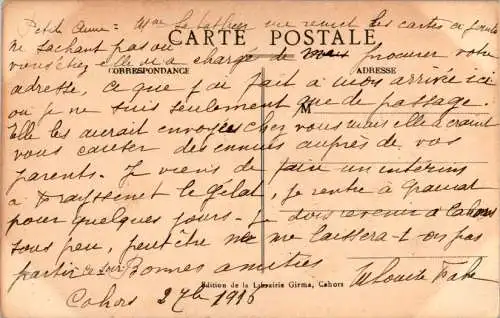 Petite Anne = Mme Lestable me remet les cartes ci jointe
CARTE POSTALE
ne sachant pas où
vous étiez elle m'a chargé de procurer votre
CORRESPONDANCE
ADRESSE
adresse, ce que j'ai fait à mon arrivée ici
M
où je ne suis seulement que de passage.
Elle les aurait envoyées chez vous mais elle a craint
vous causer des ennuis auprès de vos
parents. Je viens de faire un intérim
à Frayssinet le Gélat, je rentre à Gramat
pour quelques jours. Je dois revenir à Cahors
sous peu, peut être ne me laissera-t-on pas
partir ce soir Bonnes amitiés
Edition de la Librairie Girma, Cahors
Cahors 2 7bre 1916